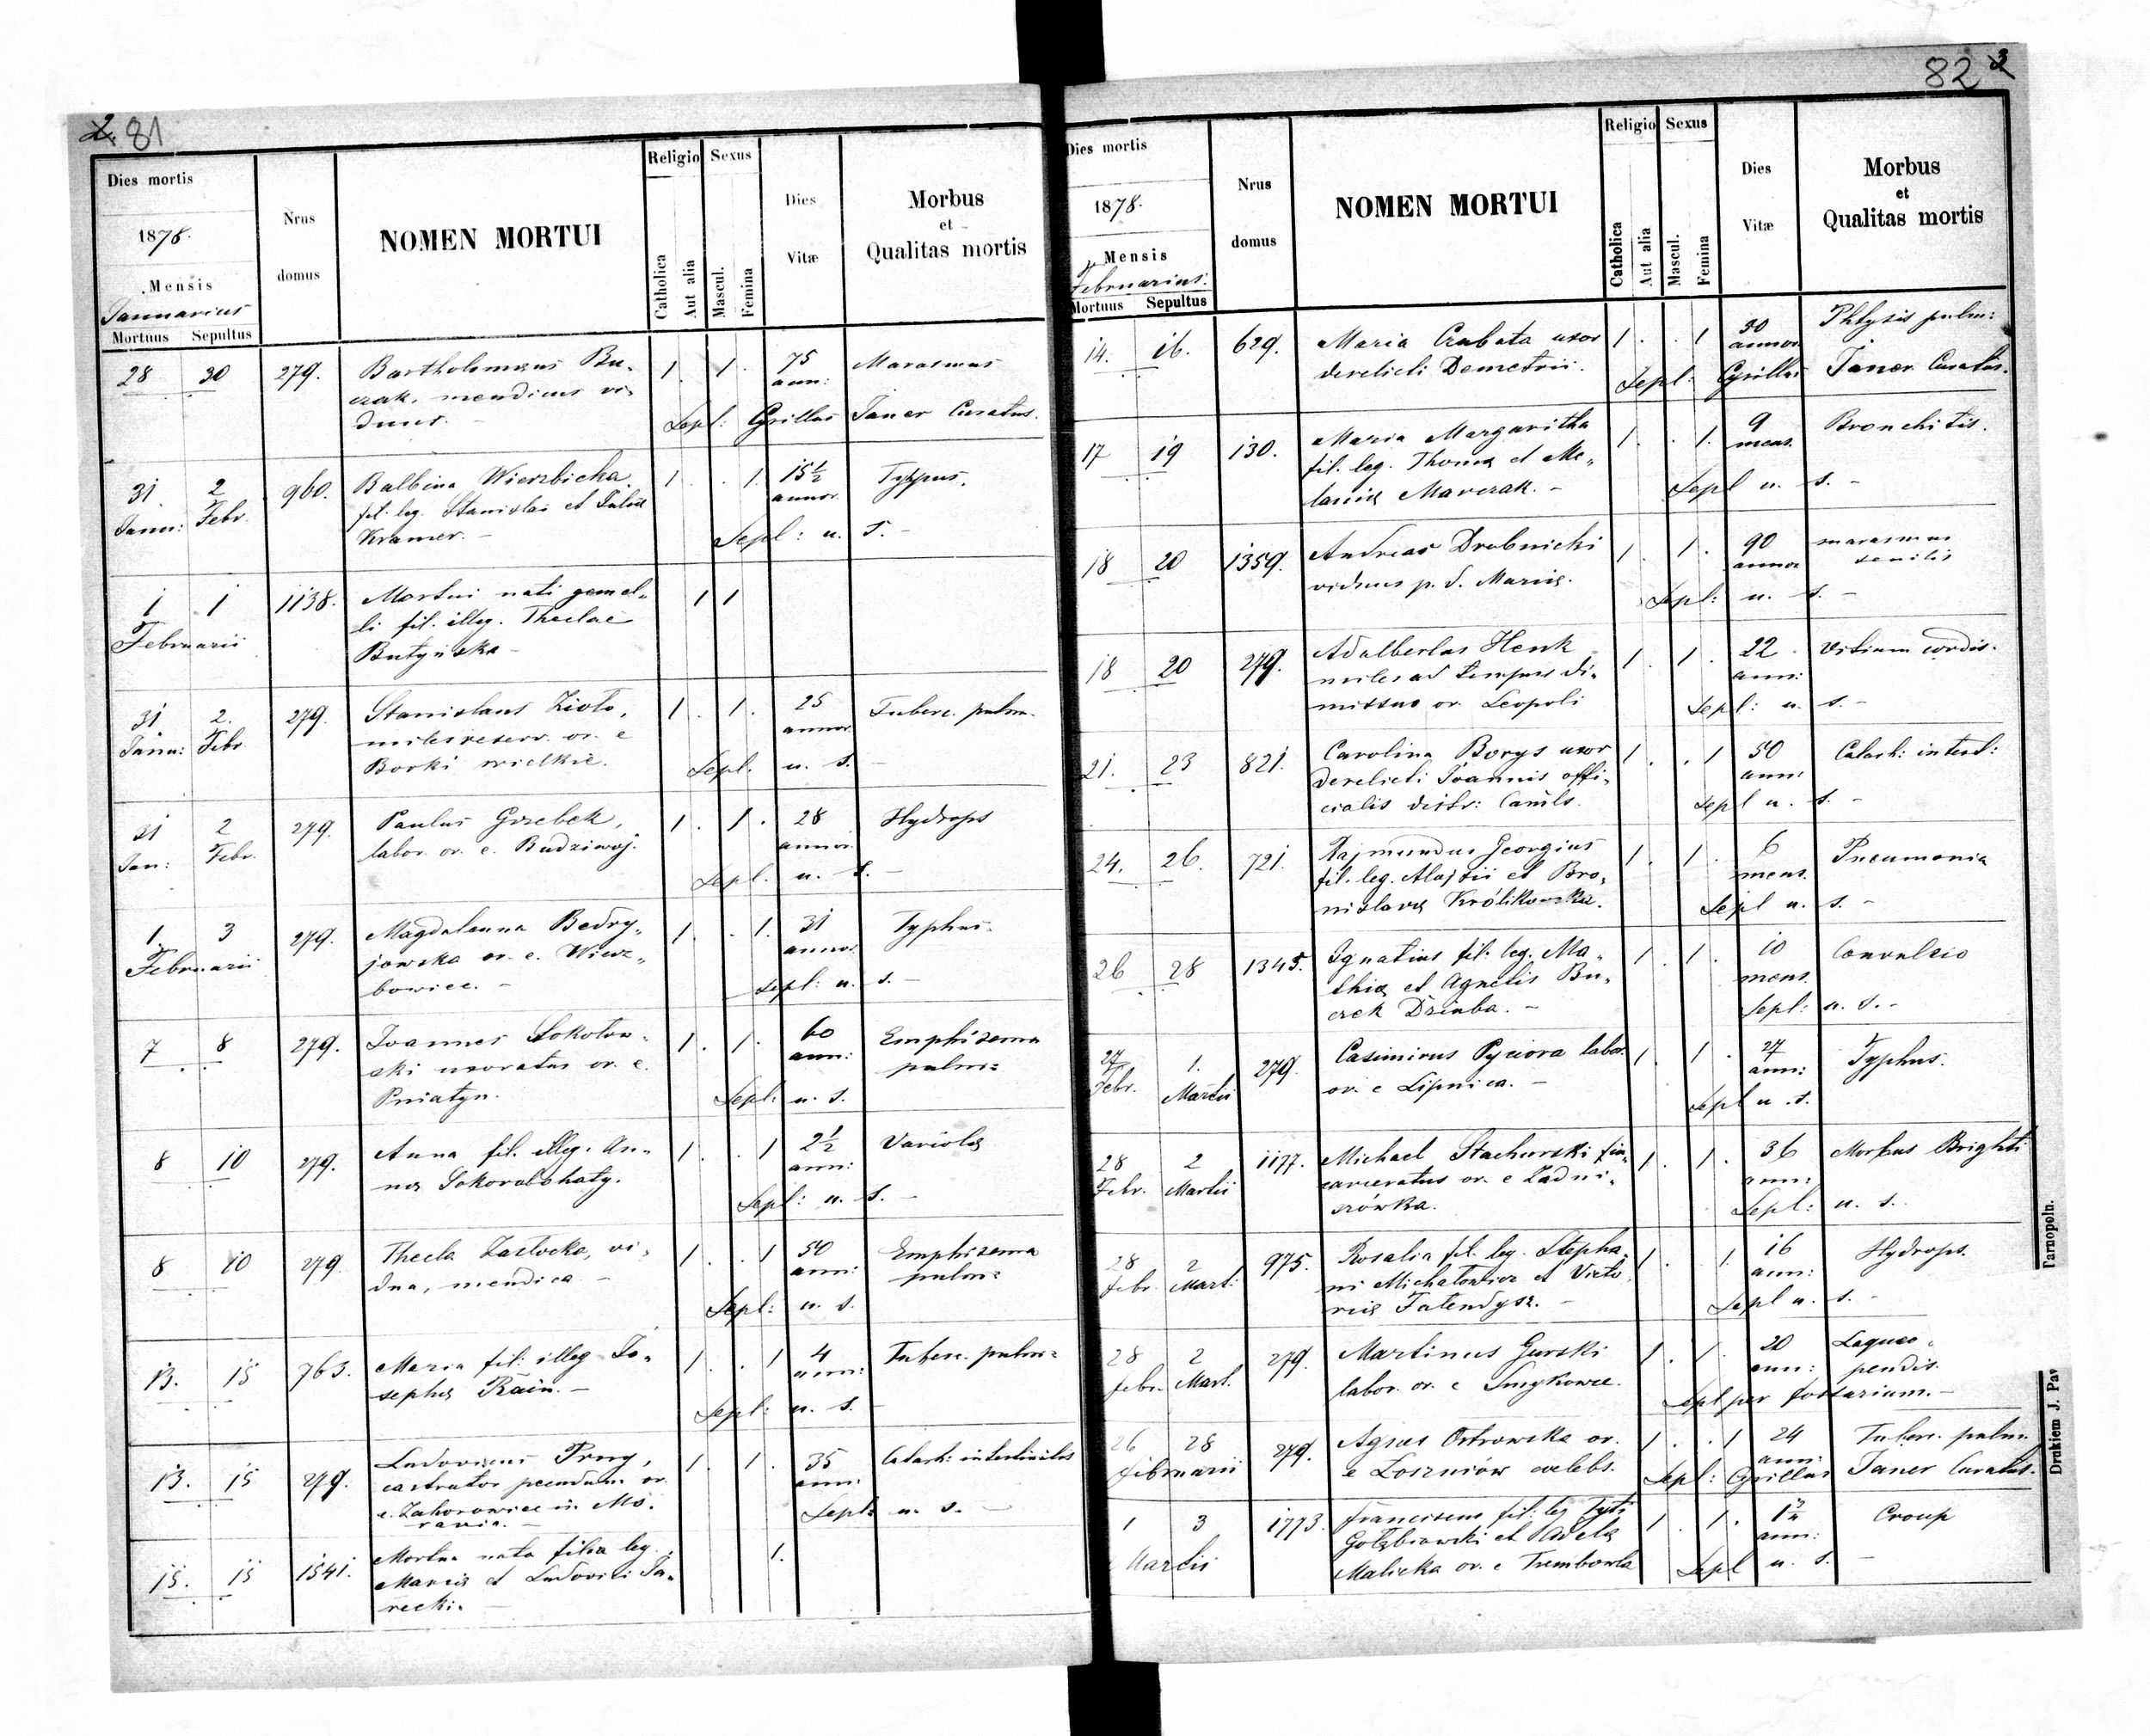 2. 81
Dies mortis
1878.
Mensis
Januarius
Mortuus Sepultus
Nrus domus
NOMEN MORTUI
Religio
Catholica
Aut alia
Sexus
Mascul.
Femina
Dies Vitæ
Morbus
et
Qualitas mortis
28 30 279. Bartholomæus Bu- 1. 1. 75 Marasmus
czak, mendicus vi- ann:
duus. Sepl: Cyrillus Janer Curatus.
31. 2 960. Balbina Wierzbicka 1. . 1. 15½ Typpus.
Janu: Febr. fil. leg. Stanislai et Juliæ annor.
Kramer. Sepl: u. s. -
1 1 1138. Mortui nati gemel- 1 1
Februarii li fil. illeg. Theclae
Butyńska -
31 2. 279. Stanislaus Zioło, 1. 1. 25 Tuberc. pulm.
Janu: Febr miles reserv. or. e annor.
Borki wielkie. Sepl. u. s. -
31 2 279. Paulus Grzebek, 1. 1. 28 Hydrops
Jan: Febr. labor. or. e. Budziwoj. annor.
Sepl. u. s. -
1. 3 279. Magdalenna Bedry- 1. . 1. 31 Typhus.
Februarii jowska or. e. Wierz- annor.
bowiec. - Sepl: u. s. -
7 8 279. Joannes Sokołow- 1. 1. 60 Emphisema
ski uxoratus or. e. ann: pulm:
Pniatyn. Sepl: u. s.
8 10 279. Anna fil. illeg. An- 1. . 1 2½ Variolæ
næ Sokorobohaty. ann:
Sepl: u. s. -
8 10 279. Thecla Zastocka, vi- 1. . 1 50 Emphisema
dua, mendica - ann: pulm:
Sepl: u. s.
13. 15 763. Maria fil: illeg Jo- 1. . 1 4 Tuberc. pulm:
sephæ Rain. - ann:
Sepl: u. s. -
13. 15 279. Ludovicus Prny, 1. 1. 35 Catarh: intestinalis
castrator pecudum or. ann.
e. Zahorowice in Mo- Sepl: u. s. -
ravia. -
15. 15 1541. Mortua nata filia leg. 1.
Mariæ et Ludovici Ja-
recki. -
82 3
Dies mortis
1878.
Mensis
Februarius.
Mortuus Sepultus
Nrus domus
NOMEN MORTUI
Religio
Catholica
Aut alia
Sexus
Mascul.
Femina
Dies Vitæ
Morbus
et
Qualitas mortis
14. 16. 629. Maria Crabata uxor 1. . 1 30 Phtysis pulm:
derelicti Demetrii. annor
Sepl: Cyrillus Janer Curatus.
17 19 130. Maria Margaritha 1. . 1. 9 Bronchitis.
fil. leg. Thomæ et Me- mens.
laniæ Marczak. - Sepl u. s. -
18 20 1359. Andreas Drobnicki 1. 1. 90 marasmus
viduus p. d. Mariæ. annor senilis
Sepl: u. s. -
18 20 279. Adalbertus Henk 1. 1. 22 Vitium cordis.
miles ad tempus di- ann:
missus or. Leopoli Sepl: u. s. -
21. 23 821. Carolina Borys uxor 1. . 1 50 Catarh: intest:
derelicti Joannis offi- ann:
cialis distr: Sepl u. s. -
24. 26. 721. Rajmundus Georgius 1. 1. 6 Pneumonia
fil. leg. Alojsii et Bro- mens.
nislavæ Królikowska. Sepl u. s. -
26 28 1345. Ignatius fil. leg. Ma- 1. 1. 10 Convulsio
thiæ et Agnetis Bu- mens.
czek Dziuba. - Sepl: u. s. -
27 1. 279. Casimirus Pyziora labor. 1. 1. 27 Typhus.
Febr. Martii or. e Lipnica. - ann:
Sepl u. s.
28 2 1177. Michael Stachurski in- 1. 1. 36 Morbus Brighti
Febr. Martii carceratus or. e Zadni- ann:
szówka. Sepl: u. s.
28 2 975. Rosalia fil. leg. Stepha- 1. . 1. 16 Hydrops.
febr. Mart: ni Michałowicz et Victo- ann:
riæ Tatendysz. - Sepl u. s. -
28 2 279. Martinus Gurski 1. 1. 20 Laqueo
febr. Mart. labor. or. e Smykowce. ann: pendis.
Sepl per fossarium. -
26 28 279. Agnes Ostrowska or. 1. . 1 24 Tuberc. pulm.
februarii e Łoszniów caelebs. ann.
Sepl: Cyrillus Janer Curatus.
1 3 1773. Franciscus fil. leg Tyti 1. 1. 1½ Croup
Martii Gołębiowski et Pavelæ ann:
Malicka or. e Trembowla Sepl u. s. -
Drukiem J. Pav
Tarnopoln.